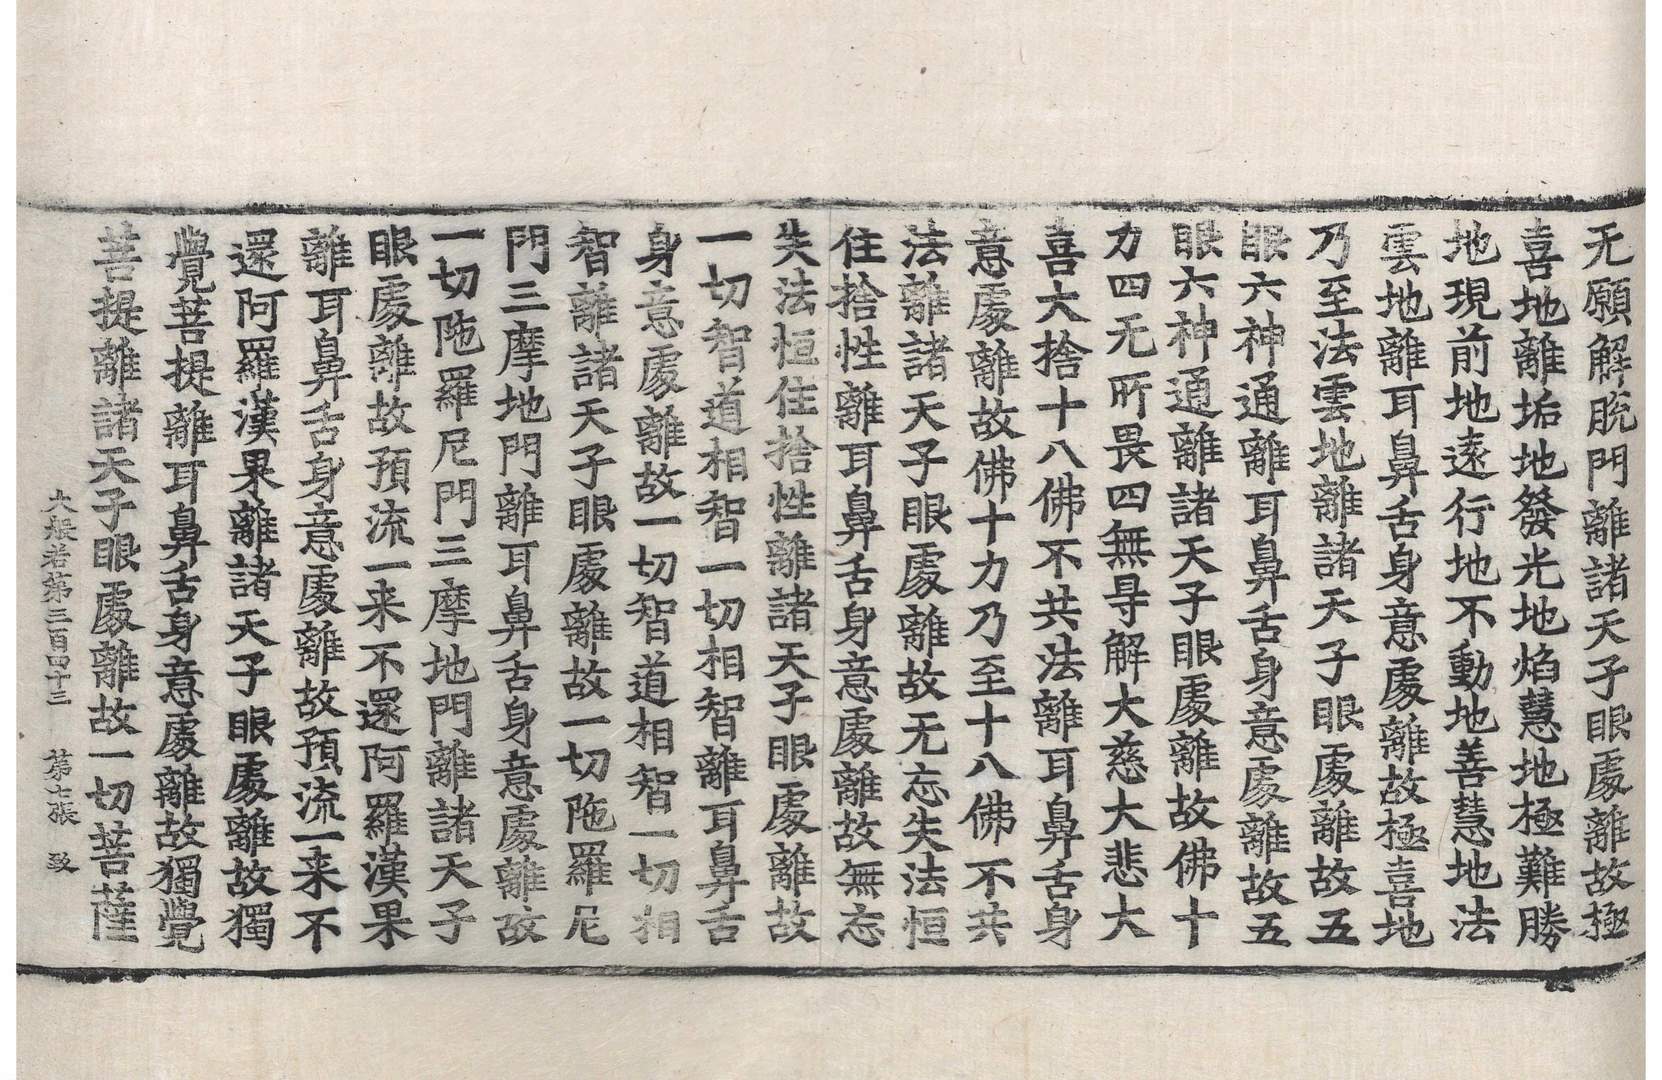 无願解脫門離諸天子眼處離故極
喜地離垢地發光地焰慧地極難勝
地現前地遠行地不動地善慧地法
雲地離耳鼻舌身意處離故極喜地
乃至法雲地離諸天子眼處離故五
眼六神通離耳鼻舌身意處離故五
眼六神通離諸天子眼處離故佛十
力四无所畏四無㝵解大慈大悲大
喜大捨十八佛不共法離耳鼻舌身
意處離故佛十力乃至十八佛不共
法離諸天子眼處離故无忘失法恒
住捨性離耳鼻舌身意處離故無忘
失法恒住捨性離諸天子眼處離故
一切智道相智一切相智離耳鼻舌
身意處離故一切智道相智一切相
智離諸天子眼處離故一切陁羅尼
門三摩地門離耳鼻舌身意處離故
一切陁羅尼門三摩地門離諸天子
眼處離故預流一来不還阿羅漢果
離耳鼻舌身意處離故預流一来不
還阿羅漢果離諸天子眼處離故獨
覺菩提離耳鼻舌身意處離故獨覺
菩提離諸天子眼處離故一切菩薩
大般若第三百四十三 第七張 致